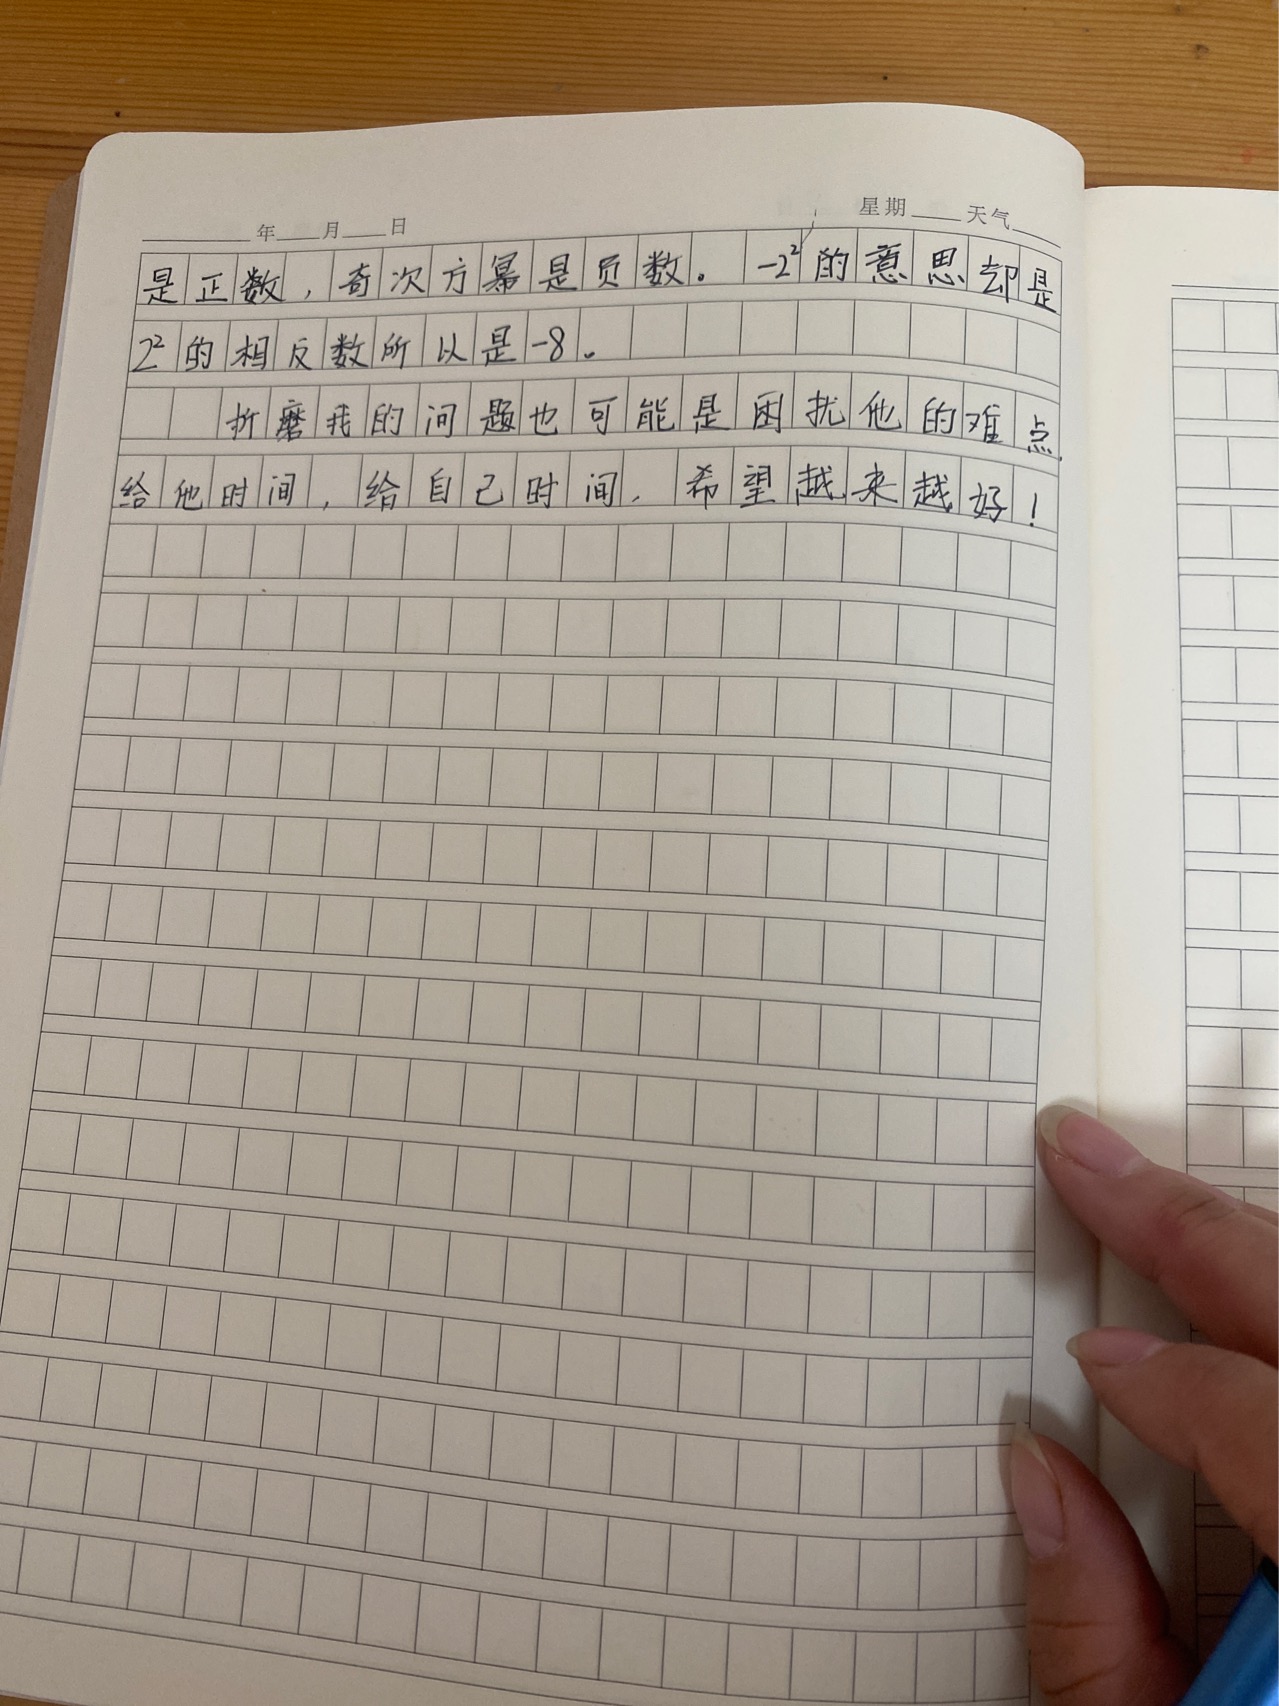 年 月 日 星期 天气
是正数，奇次方幂是负数。 -2²的意思却是
2²的相反数所以是-8。
折磨我的问题也可能是困扰他的难点,
给他时间，给自己时间，希望越来越好！